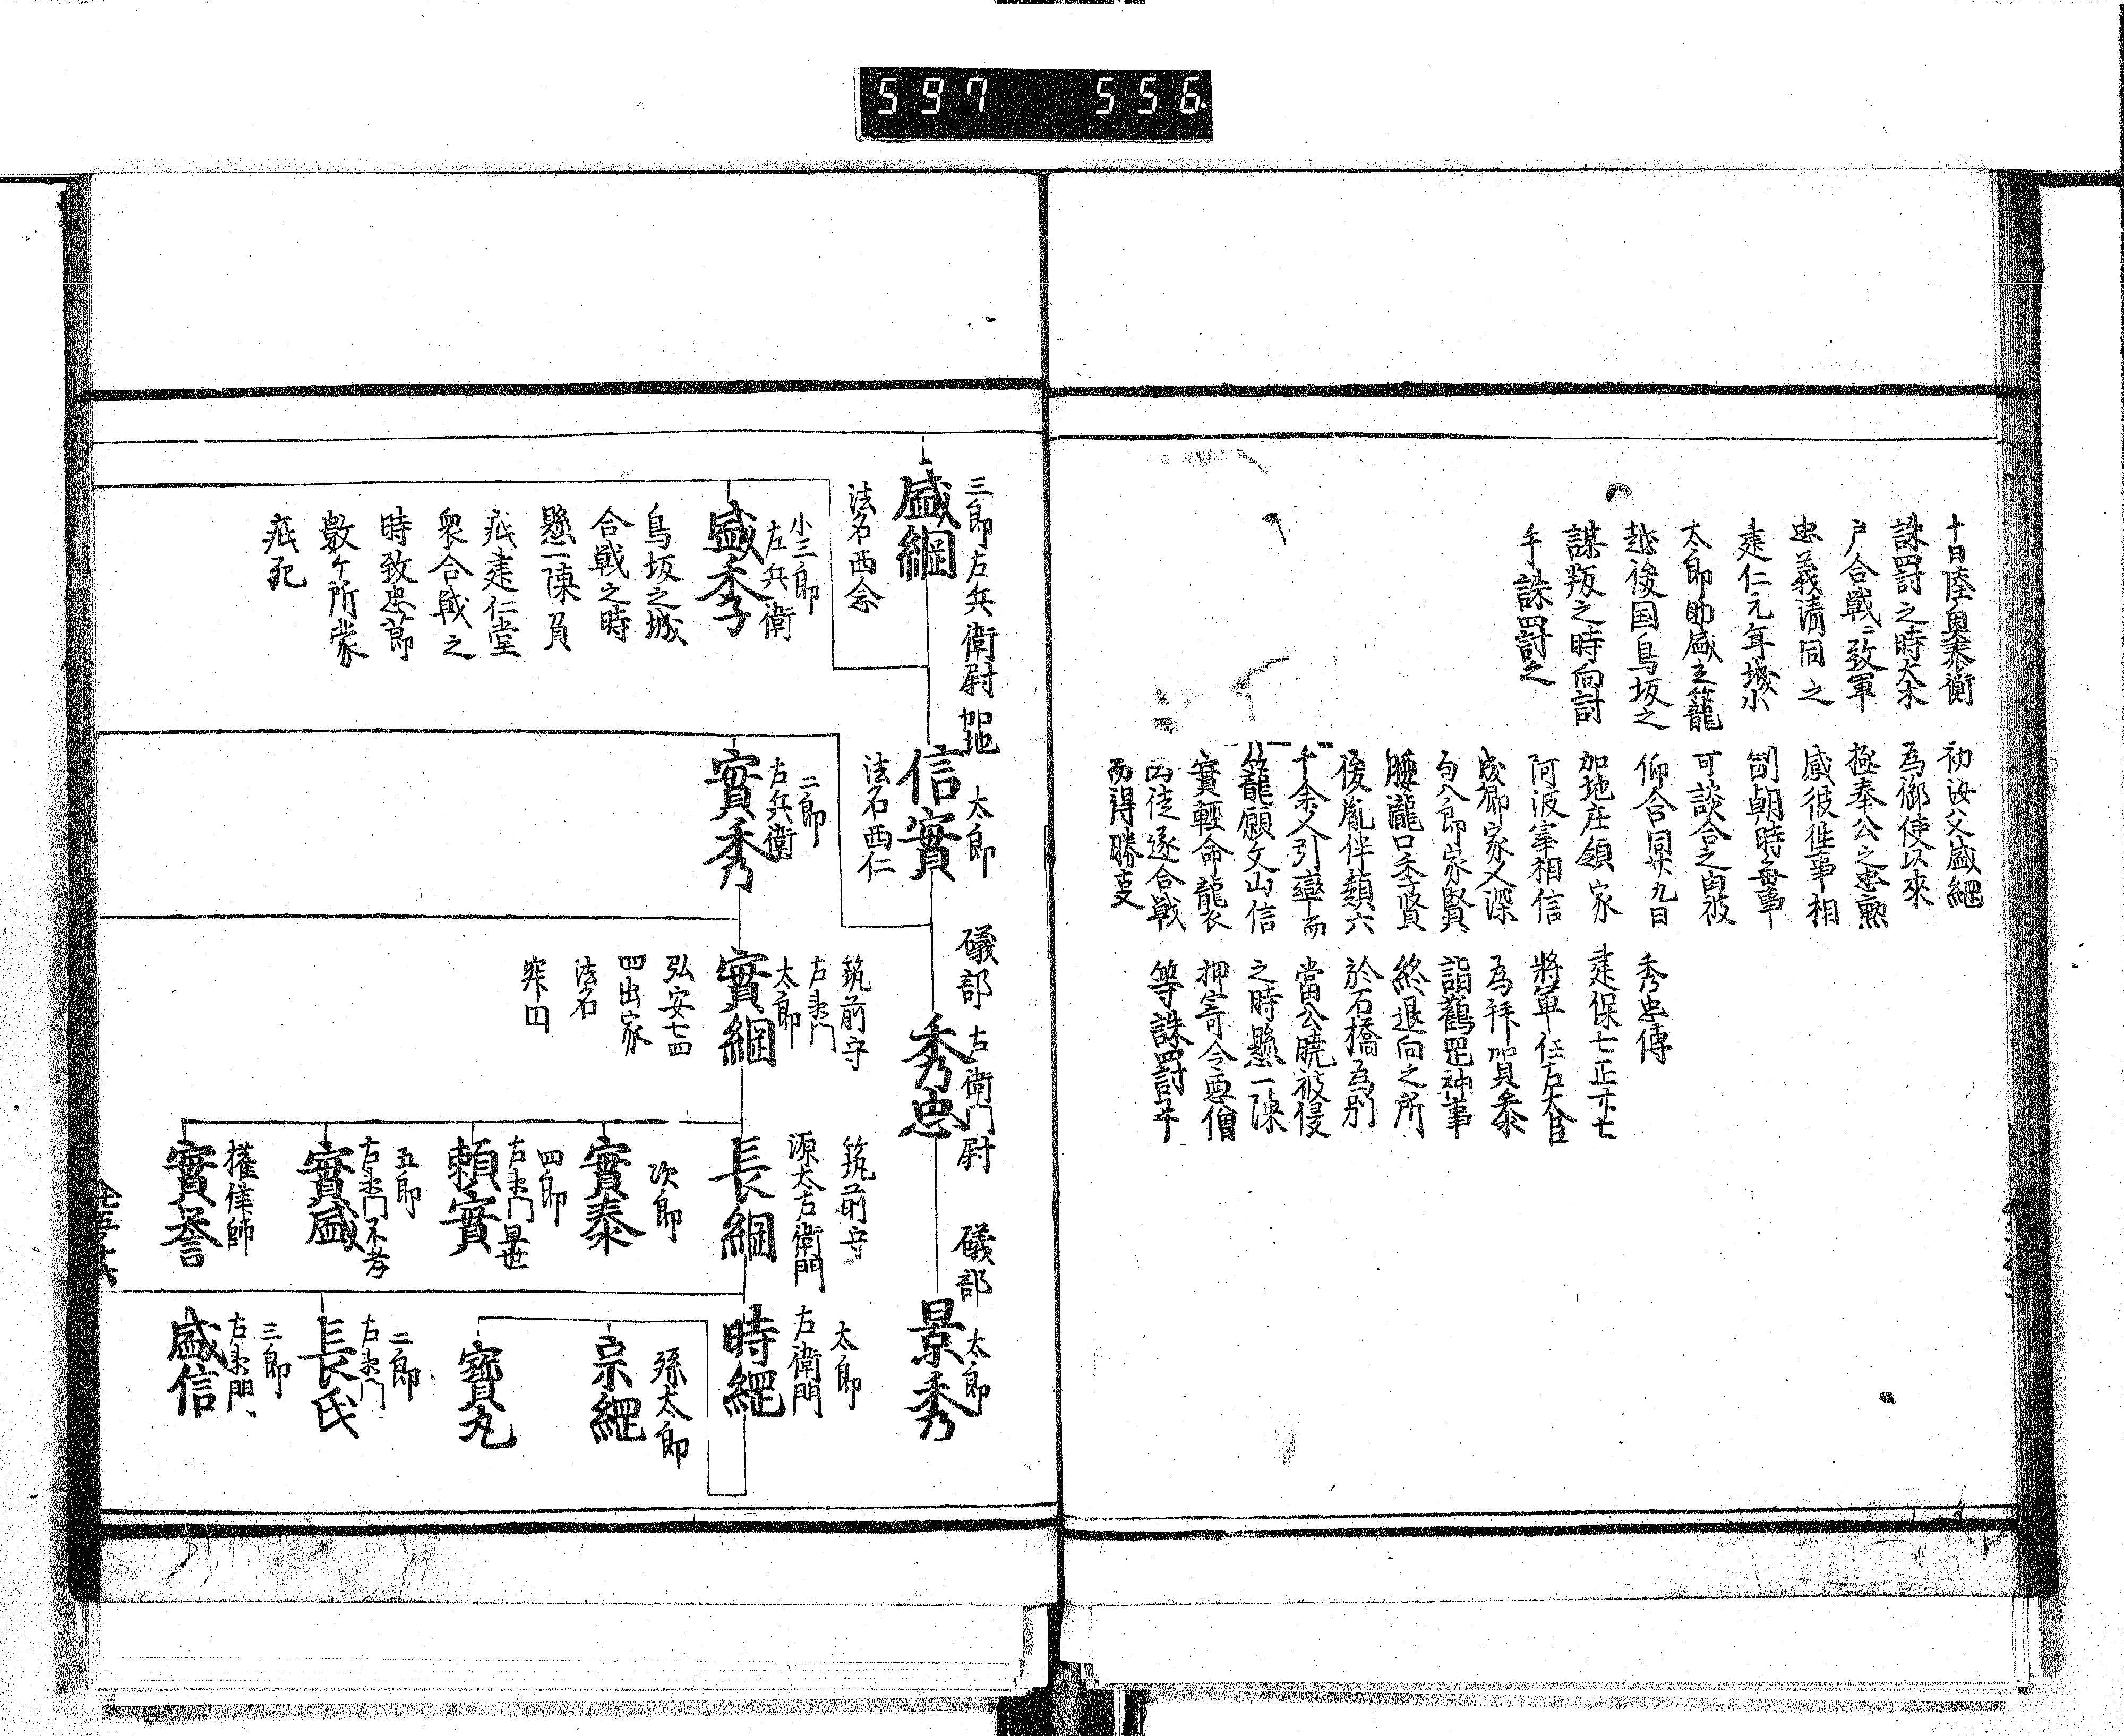 597 556
十日陸奥泰衡
誅罸之時大木
戸合戦ニ致軍
忠義清同之
建仁元年城小
太郎助盛立篭
越後国鳥坂之
謀叛之時向討
手誅罸之
初汝父盛綱
為御使以来
極奉公之忠勲
感彼徃事相
刮朝時毎事
可談合之由被
仰合同廿九日
加地庄領家
阿波宰相信
成郷家人深
匂八郎家賢
腰瀧口季賢
後胤伴類六
十余人引率而
篭願文山信
實輕命襲
凶徒遂合戦
而得勝支
秀忠傳
建保七正廿七
将軍任右大臣
為拝賀参
詣鶴罡神事
終退向之所
於石橋為別
當公暁被侵
之時懸一陳
押寄令悪僧
等誅罸畢
三郎左兵衛尉 加地
盛綱
法名西念
小三郎
左兵衛
盛季
鳥坂之城
合戦之時
懸一陳負
疵建仁堂
衆合戦之
時致忠節
数ケ所蒙
疵死
太郎
信實
法名西仁
二郎
左兵衛
實秀
礒部 右衛門尉
秀忠
筑前守
左衛門
太郎
實綱
弘安七四
四出家
法名
筑前守
源太左衛門
長綱
次郎
實泰
四郎
右衛門 早世
頼實
五郎
右衛門不孝
實盛
權律師
實誉
礒部 太郎
景秀
太郎
左衛門
時綱
孫太郎
宗綱
寳丸
二郎
右衛門
長氏
三郎
右衛門
盛信